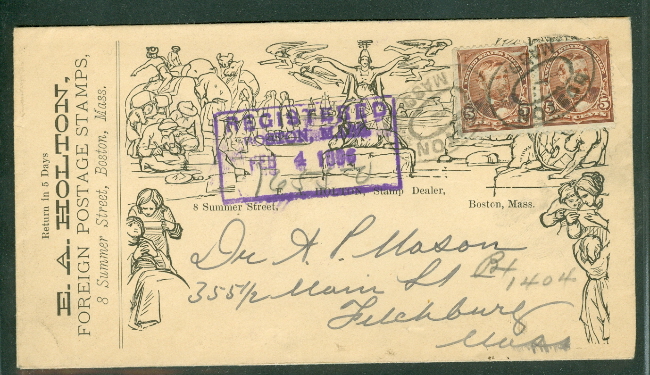 Return in 5 Days
E. A. HOLTON,
FOREIGN POSTAGE STAMPS,
8 Summer Street, Boston, Mass.
REGISTERED
BOSTON, MASS.
FEB 4 1896
HOLTON, Stamp Dealer,
8 Summer Street,
Boston, Mass.
Dr A. P. Mason
355 1/2 Main St
Bx 1404
Fitchburg
Mass
5
5